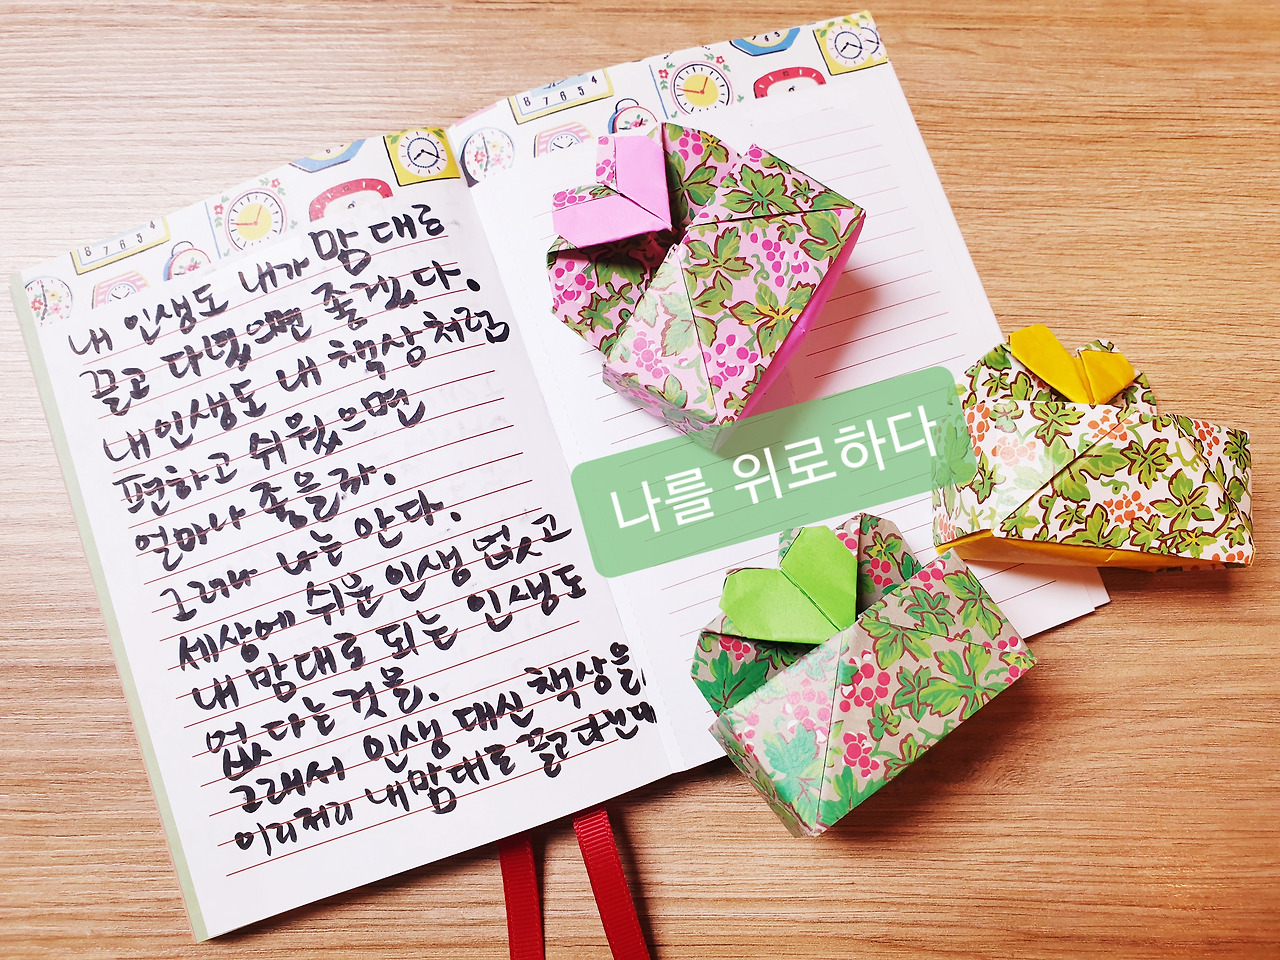 내 인생도 내가 맘대로
끌고 다녔으면 좋겠다.
내 인생도 내 책상처럼
편하고 쉬웠으면
얼마나 좋을까.
그러나 나는 안다.
세상에 쉬운 인생 없고
내 맘대로 되는 인생도
없다는 것을.
그래서 인생 대신 책상을
이리저리 내맘대로 끌고 다닌다
나를 위로하다
8 7 6 5 4
8 7 6 5 4